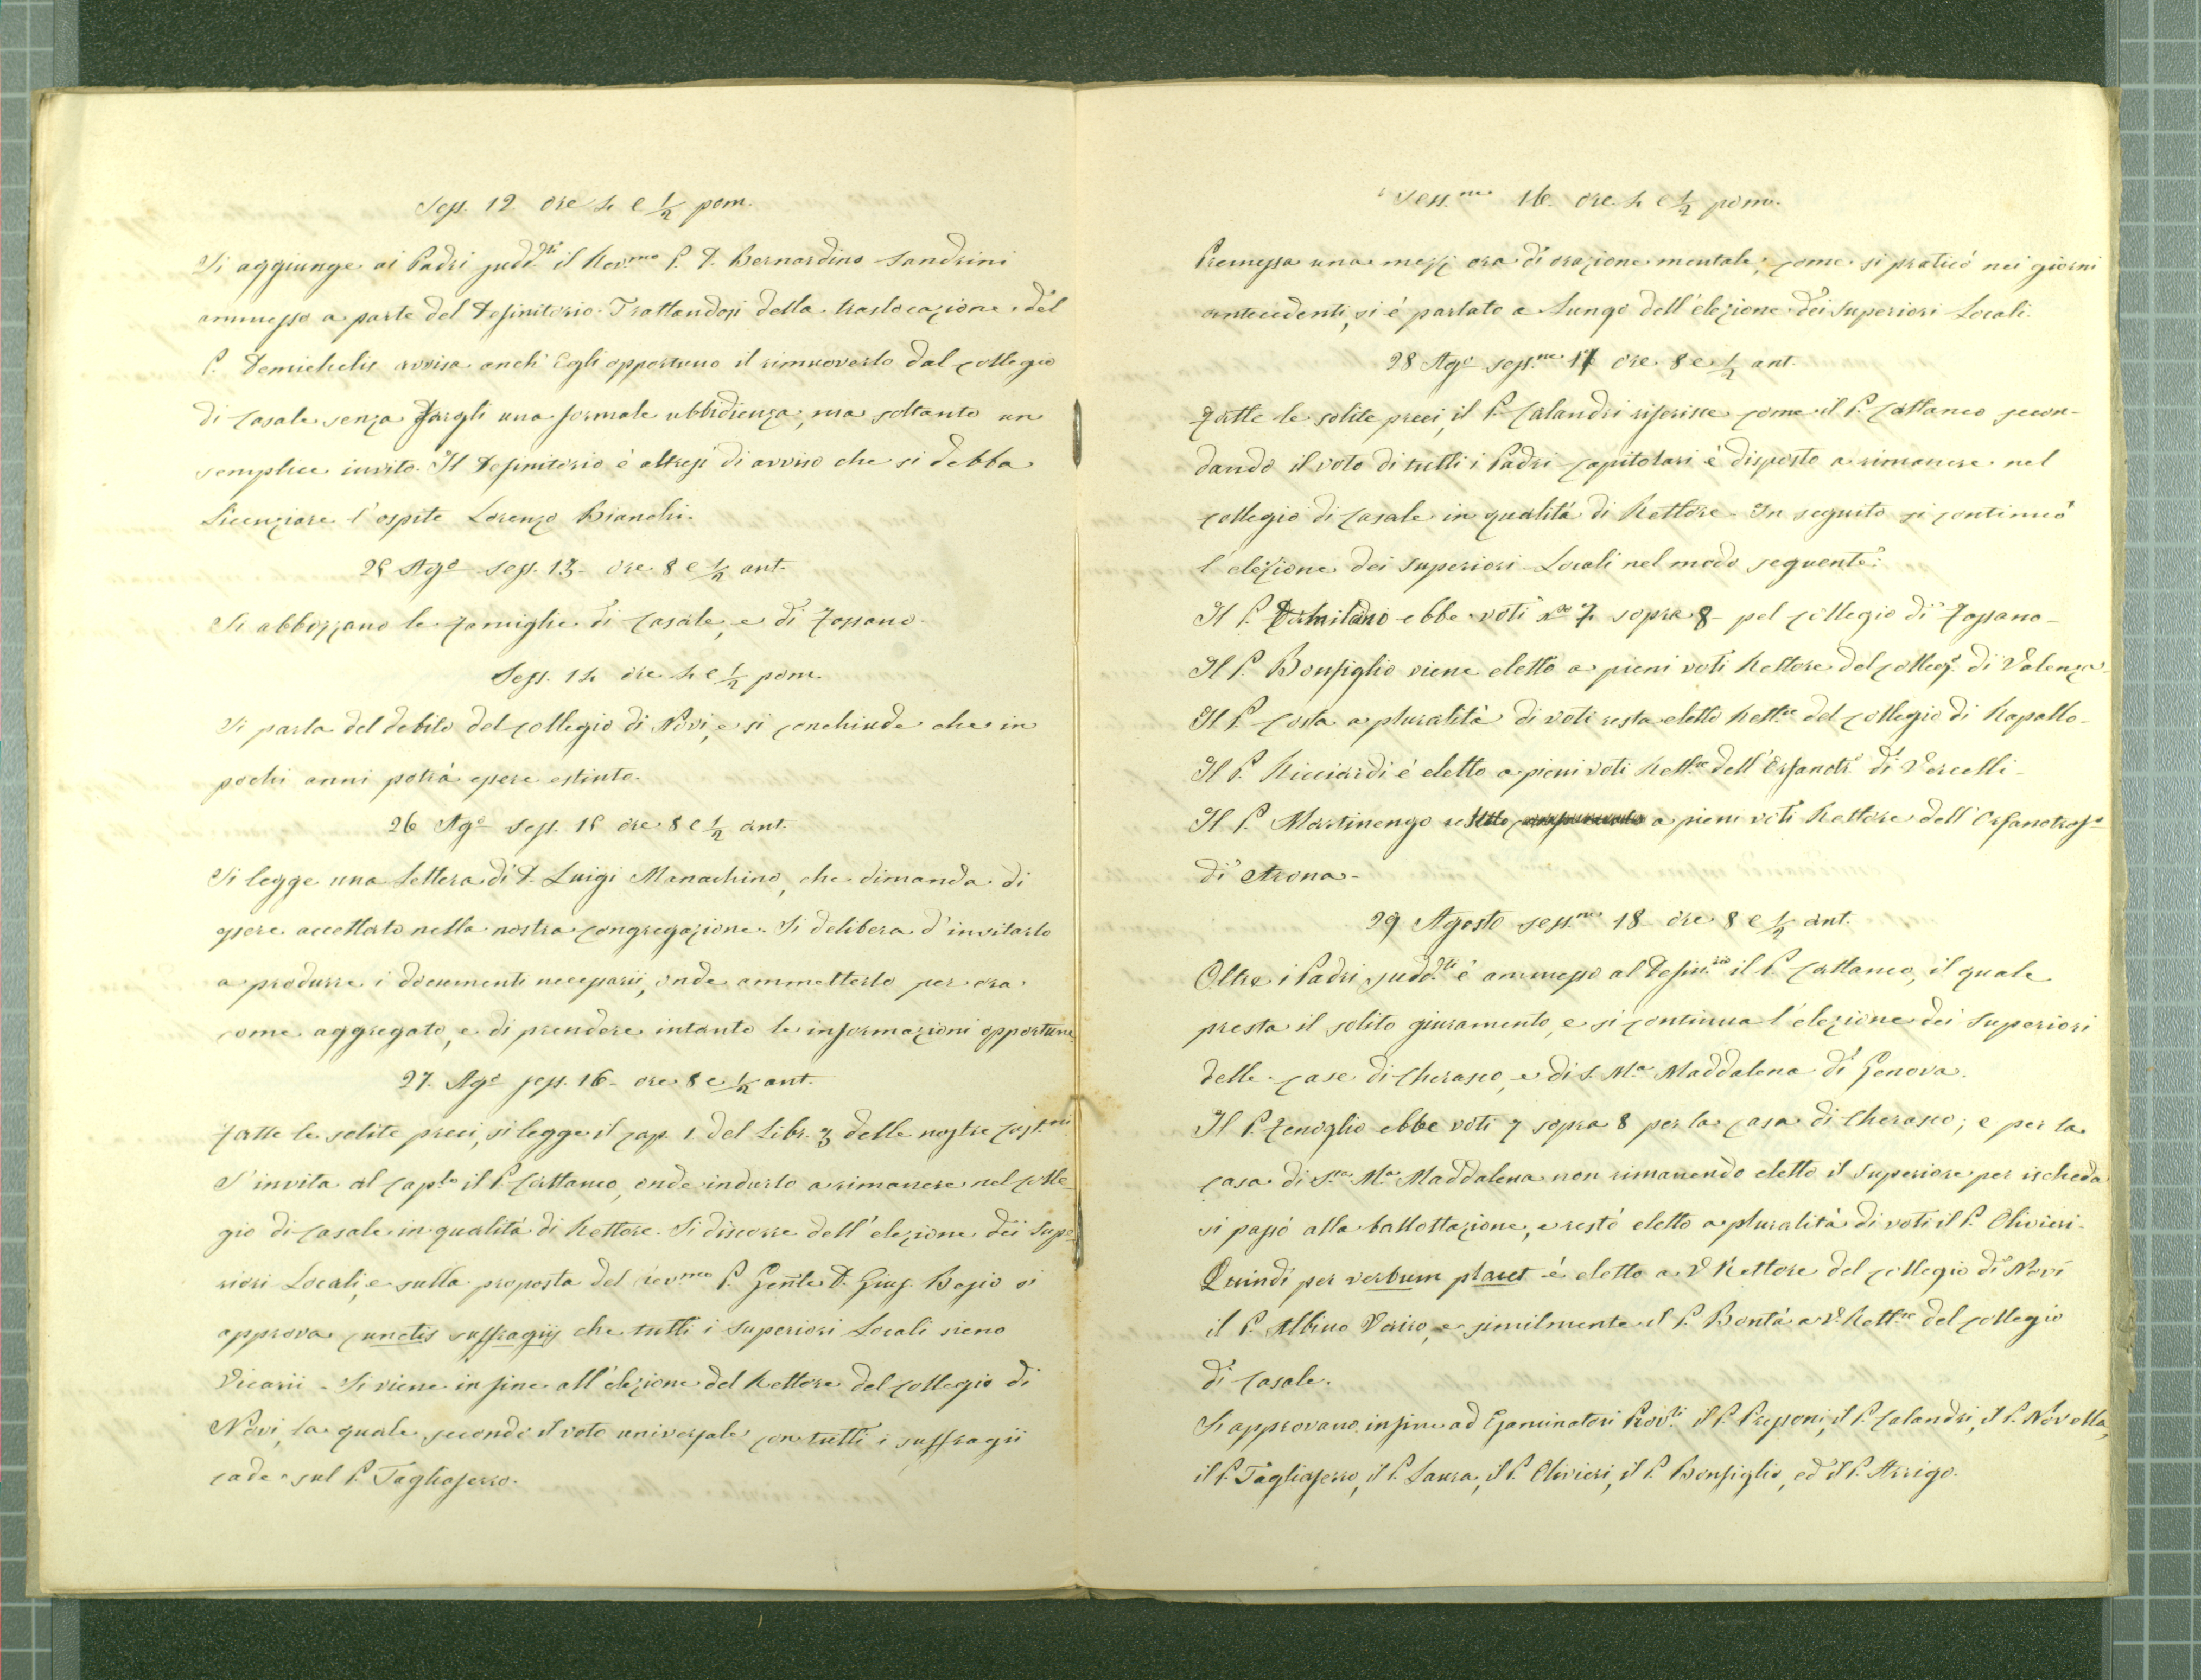 Sess. 12 ore 4 e 1/2 pom.
Si aggiunge ai Padri sudd.ti il Rev.mo P. D. Bernardino Sandrini
ammesso a parte del Definitorio. Trattandosi della traslocazione del
P. Demichelis avvisa anch' Egli opportuno il rimuoverlo dal collegio
di Casale senza fargli una formale ubbidienza, ma soltanto un
semplice invito. Il Definitorio è altresì di avviso che si debba
licenziare l'ospite Lorenzo Bianchi.
25 Ag.o Sess. 13 - ore 8 e 1/2 ant.
Si abbozzano le famiglie di Casale, e di Fossano.
Sess. 14 ore 4 e 1/2 pom.
Si parla del debito del collegio di Novi, e si conchiude che in
pochi anni potrà essere estinto.
26 Ag.o Sess. 15 ore 8 e 1/2 ant.
Si legge una lettera di D. Luigi Manachino, che dimanda di
essere accettato nella nostra congregazione. Si delibera d'invitarlo
a produrre i documenti necessarii, onde ammetterlo per ora
come aggregato, e di prendere intanto le informazioni opportune.
27. Ag.o sess. 16 - ore 8 e 1/2 ant.
Fatte le solite preci, si legge il cap. 1 del Libr. 3 delle nostre Cost.ni
S'invita al Cap.lo il P. Cattaneo, onde indurlo a rimanere nel colle-
gio di Casale in qualità di Rettore. Si discorre dell' elezione dei Supe-
riori Locali, e sulla proposta del rev.mo P. Gen̄le D. Gius. Besio si
approva cunctis suffragiis che tutti i Superiori Locali sieno
Vicarii - Si viene in fine all'elezione del Rettore del collegio di
Novi, la quale secondo il voto universale con tutti i suffragii
cade sul P. Tagliaferro.
Sess.ne 16 ore 4 e 1/2 pom.
Premessa una mezz ora di orazione mentale, come si praticò nei giorni
antecedenti, si è parlato a lungo dell'elezione dei Superiori Locali.
28 Ag.o sess.ne 17 ore 8 e 1/2 ant.
Fatte le solite preci, il P. Calandri riferisce come il P. Cattaneo secon-
dando il voto di tutti i Padri Capitolari è disposto a rimanere nel
collegio di Casale in qualità di Rettore - In seguito si continuò
l'elezione dei Superiori Locali nel modo seguente:
Il P. ebbe voti n.o 7 sopra 8 - pel collegio di Fossano -
Il P. Bonfiglio viene eletto a pieni voti Rettore del colleg.o di Valenza -
Il P. Costa a pluralità di voti resta eletto Rett.re del collegio di Rapallo -
Il P. Ricciardi è eletto a pieni voti Rett.re dell'Orfanotr.o di Vercelli -
Il P. Martinengo a pieni voti Rettore dell' Orfanotrof.o
di Arona -
29 Agosto sess.ne 18 ore 8 e 1/2 ant.
Oltre i Padri sudd.ti è ammesso al Defin.rio il P. Cattaneo, il quale
presta il solito giuramento, e si continua l'elezione dei Superiori
delle case di Cherasco, e di S. M.a Maddalena di Genova.
Il P. Zenoglio ebbe voti 7 sopra 8 per la casa di Cherasco; e per la
casa di S.ta M.a Maddalena non rimanendo eletto il Superiore per ischeda
si passò alla ballottazione, e restò eletto a pluralità di voti il P. Olivieri.
Quindi per verbum placet è eletto a V. Rettore del collegio di Novi
il P. Albino Vairo, e similmente il P. Bontà a V. Rett.re del collegio
di Casale.
Si approvano infine ad Esaminatori Prov.li il P. Preponi, il P. Calandri, il P. Novella,
il P. Tagliaferro, il P. Laura, il P. Olivieri, il P. Bonfiglio, ed il P. Arrigo.